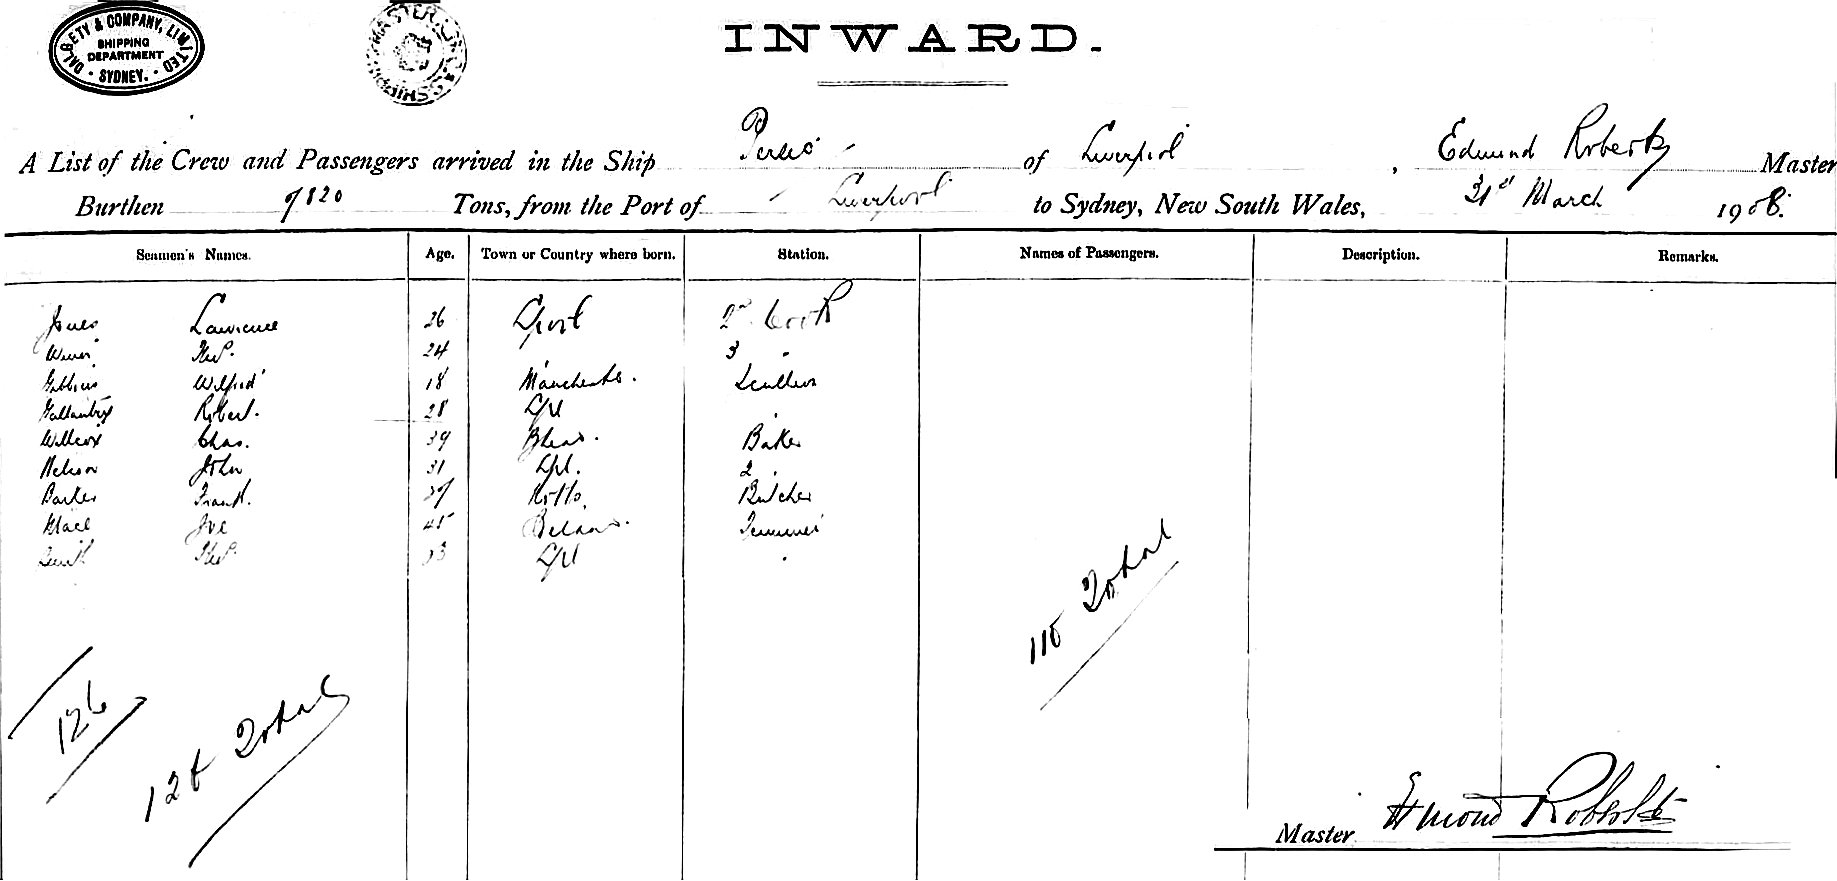 DALGETY & COMPANY, LIMITED
SHIPPING
DEPARTMENT
SYDNEY.
INWARD.
A List of the Crew and Passengers arrived in the Ship Persic of Liverpool, Edmund Roberts Master
Burthen 7820 Tons, from the Port of Liverpool to Sydney, New South Wales, 31st March 1908.
Seamen's Names. Age. Town or Country where born. Station. Names of Passengers. Description. Remarks.
Jones Lawrence 26 Lpool 2nd Cook
24 3 "
Gibbins Wilfred 18 Manchester. Scullion
Robert. 28 Lpl
Willcox Chas. 39 Bhead. Baker
Nelson John 31 Lpl. 2
Barker Frank. Notts. Butcher
Joe 45
Lpl
115 Total
126
Total
Master Edmund Roberts